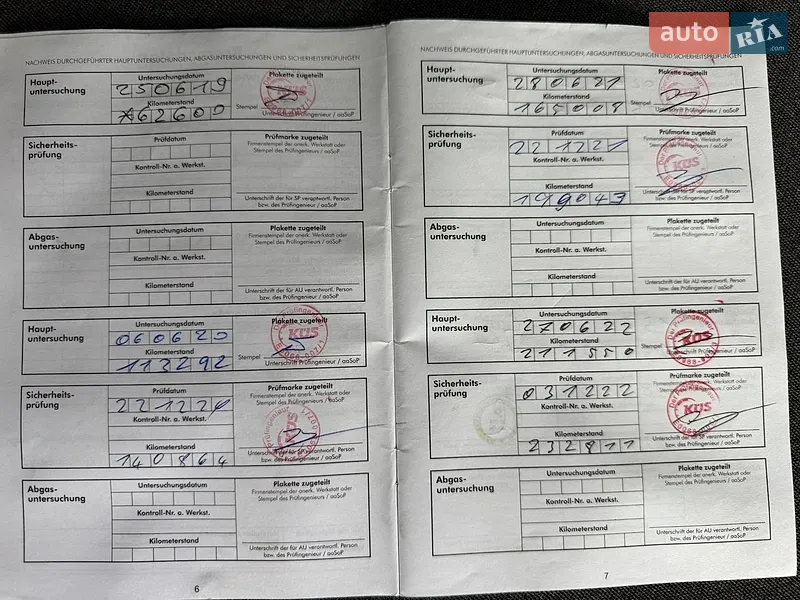 auto RIA
NACHWEIS DURCHGEFÜHRTER HAUPTUNTERSUCHUNGEN, ABGASUNTERSUCHUNGEN UND SICHERHEITSPRÜFUNGEN
Haupt-
untersuchung
Untersuchungsdatum
250619
Kilometerstand
62600
Plakette zugeteilt
Stempel
Unterschrift Prüfingenieur / aaSoP
Sicherheits-
prüfung
Prüfdatum
Kontroll-Nr. a. Werkst.
Kilometerstand
Prüfmarke zugeteilt
Firmenstempel der anerk. Werkstatt oder
Stempel des Prüfingenieurs / aaSoP
Unterschrift der für SP verantwortl. Person
bzw. des Prüfingenieur / aaSoP
Abgas-
untersuchung
Untersuchungsdatum
Kontroll-Nr. a. Werkst.
Kilometerstand
Plakette zugeteilt
Firmenstempel der anerk. Werkstatt oder
Stempel des Prüfingenieurs / aaSoP
Unterschrift der für AU verantwortl. Person
bzw. des Prüfingenieur / aaSoP
Haupt-
untersuchung
Untersuchungsdatum
060620
Kilometerstand
113292
Plakette zugeteilt
KÜS
Stempel
Unterschrift Prüfingenieur / aaSoP
Sicherheits-
prüfung
Prüfdatum
221220
Kontroll-Nr. a. Werkst.
Kilometerstand
140864
Prüfmarke zugeteilt
Firmenstempel der anerk. Werkstatt oder
Stempel des Prüfingenieurs / aaSoP
Unterschrift der für SP verantwortl. Person
bzw. des Prüfingenieur / aaSoP
Abgas-
untersuchung
Untersuchungsdatum
Kontroll-Nr. a. Werkst.
Kilometerstand
Plakette zugeteilt
Firmenstempel der anerk. Werkstatt oder
Stempel des Prüfingenieurs / aaSoP
Unterschrift der für AU verantwortl. Person
bzw. des Prüfingenieur / aaSoP
6
NACHWEIS DURCHGEFÜHRTER HAUPTUNTERSUCHUNGEN, ABGASUNTERSUCHUNGEN UND SICHERHEITSPRÜFUNGEN
Haupt-
untersuchung
Untersuchungsdatum
280621
Kilometerstand
165008
Plakette zugeteilt
Stempel
Unterschrift Prüfingenieur / aaSoP
Sicherheits-
prüfung
Prüfdatum
221221
Kontroll-Nr. a. Werkst.
Kilometerstand
199043
Prüfmarke zugeteilt
Firmenstempel der anerk. Werkstatt oder
Stempel des Prüfingenieurs / aaSoP
KÜS
Unterschrift der für SP verantwortl. Person
bzw. des Prüfingenieur / aaSoP
Abgas-
untersuchung
Untersuchungsdatum
Kontroll-Nr. a. Werkst.
Kilometerstand
Plakette zugeteilt
Firmenstempel der anerk. Werkstatt oder
Stempel des Prüfingenieurs / aaSoP
Unterschrift der für AU verantwortl. Person
bzw. des Prüfingenieur / aaSoP
Haupt-
untersuchung
Untersuchungsdatum
270622
Kilometerstand
211550
Plakette zugeteilt
Stempel
Unterschrift Prüfingenieur / aaSoP
Sicherheits-
prüfung
Prüfdatum
031222
Kontroll-Nr. a. Werkst.
Kilometerstand
232811
Prüfmarke zugeteilt
Firmenstempel der anerk. Werkstatt oder
Stempel des Prüfingenieurs / aaSoP
KÜS
Unterschrift der für SP verantwortl. Person
bzw. des Prüfingenieur / aaSoP
Abgas-
untersuchung
Untersuchungsdatum
Kontroll-Nr. a. Werkst.
Kilometerstand
Plakette zugeteilt
Firmenstempel der anerk. Werkstatt oder
Stempel des Prüfingenieurs / aaSoP
Unterschrift der für AU verantwortl. Person
bzw. des Prüfingenieur / aaSoP
7